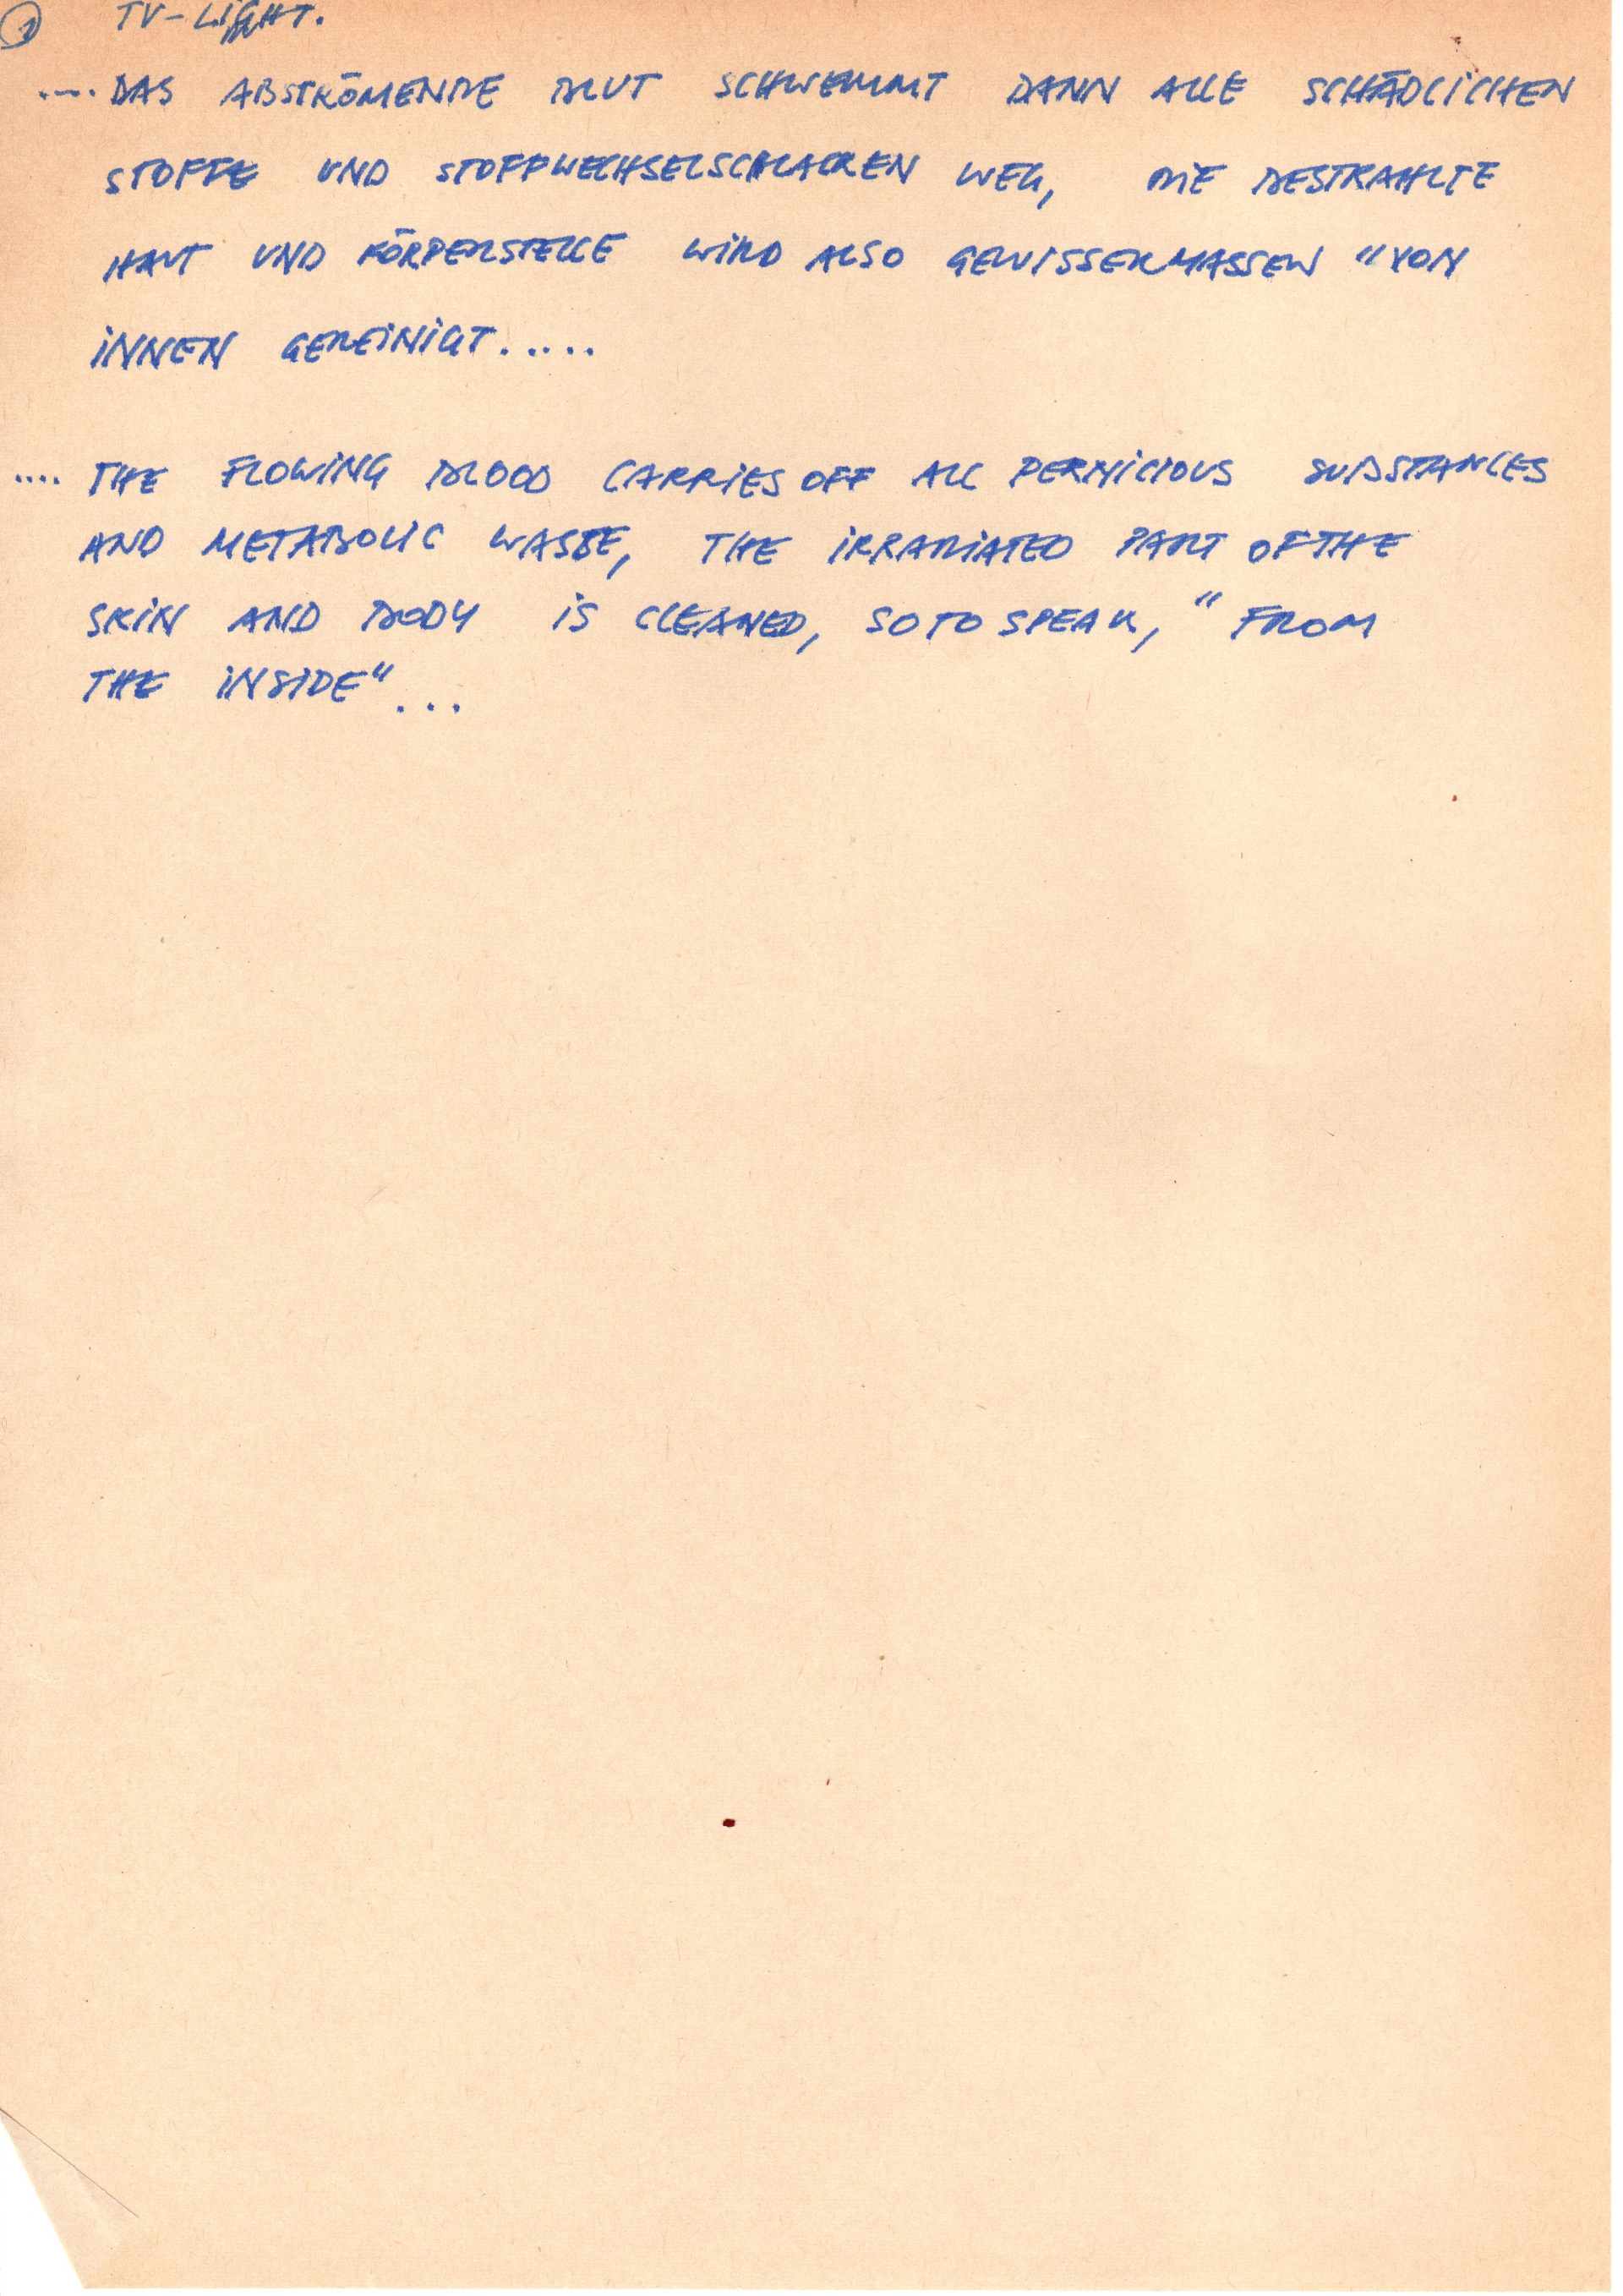 1 TV-LIGHT.
.... DAS ABSTRÖMENDE BLUT SCHWEMMT DANN ALLE SCHÄDLICHEN
STOFFE UND STOFFWECHSELSCHLACKEN WEG, DIE BESTRAHLTE
HAUT UND KÖRPERSTELLE WIRD ALSO GEWISSERMASSEN "VON
INNEN GEREINIGT.....
.... THE FLOWING BLOOD CARRIES OFF ALL PERNICIOUS SUBSTANCES
AND METABOLIC WASTE, THE IRRADIATED PART OF THE
SKIN AND BODY IS CLEANED, SO TO SPEAK, "FROM
THE INSIDE"...